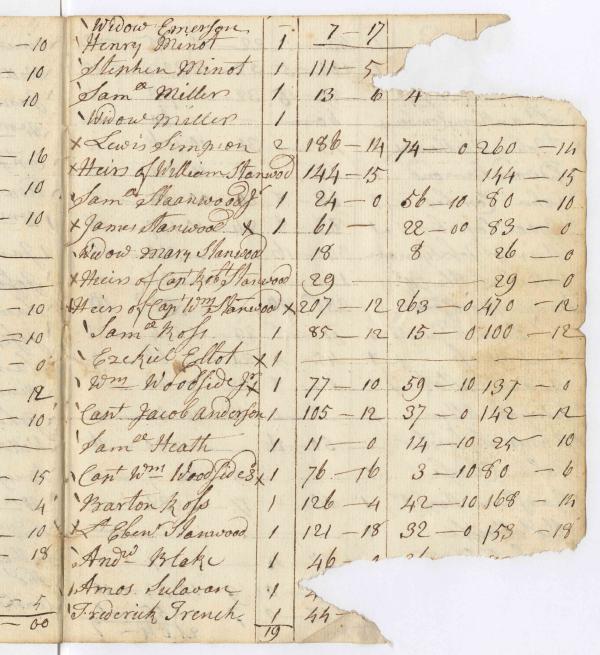 — 10
— 10
10
16
10
— 10
— 10
— 10
— 0
12
— 10
— 15
— 4
— 10
— 18
5
— 00
Widow Emerson — 7 — 17
Henry Minot 1
Stephen Minot 1 111 — 5
Sam^ll Miller 1 13 — 6 4
Widow Miller 1
x Lewis Simpson 2 186 — 14 74 — 0 260 — 14
x Heirs of William Stanwood 144 — 15 144 — 15
Sam^ll Staanwood J^r 1 24 — 0 56 — 10 80 — 10
x James Stanwood x 1 61 — 22 — 00 83 — 0
Widow Mary Stanwood 18 8 26 — 0
x Heirs of Cap^t Rob^t Stanwood 29 29 — 0
Heirs of Cap^t W^m Stanwood x 207 — 12 263 — 0 470 — 12
Sam^ll Ross 1 85 — 12 15 — 0 100 — 12
Ezekiel Ellot x 1
W^m Woodside J^r x 1 77 — 10 59 — 10 137 — 0
Capt Jacob Anderson 1 105 — 12 37 — 0 142 — 12
Sam^ll Heath 1 11 — 0 14 — 10 25 10
Capt W^m Woodside 3^d x 1 76 — 16 3 — 10 80 — 6
Barton Ross 1 126 — 4 42 — 10 168 — 14
x L^t Eben^r Stanwood 1 121 — 18 32 — 0 153 — 18
And^w Blake 1 46 —
Amos Sulavan 1
Frederick French 1 44 —
19